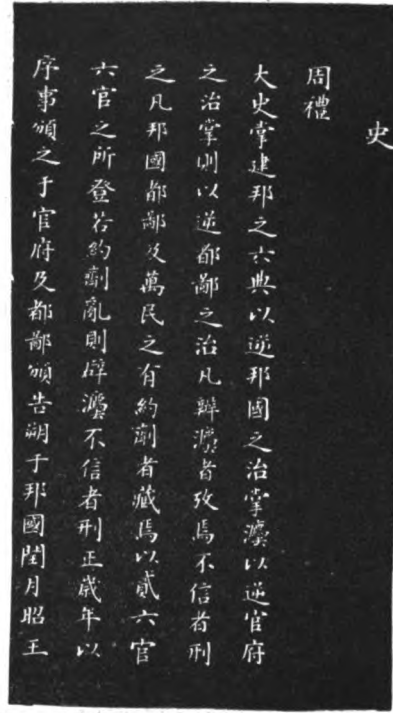 史
周禮
大史掌建邦之六典以逆邦國之治掌灋以逆官府
之治掌則以逆都鄙之治凡辯灋者攷焉不信者刑
之凡邦國都鄙及萬民之有約劑者藏焉以貳六官
六官之所登若約劑亂則辟灋不信者刑正歲年以
序事頒之于官府及都鄙頒告朔于邦國閏月昭王